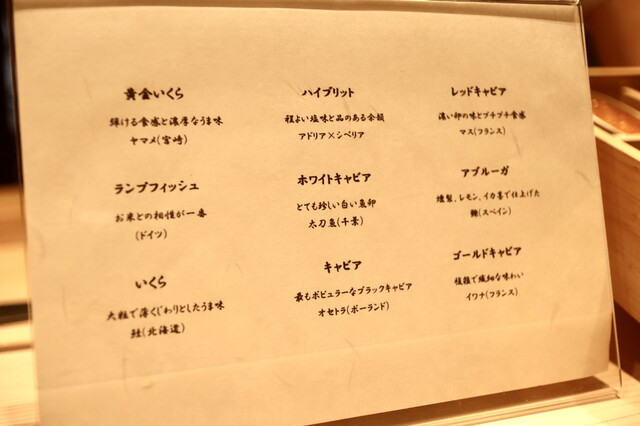 黄金いくら
弾ける食感と濃厚なうま味
ヤマメ(宮崎)
ハイブリット
程よい塩味と品のある余韻
アドリア×シベリア
レッドキャビア
濃い卵の味とプチプチ食感
マス(フランス)
ランプフィッシュ
お米との相性が一番
(ドイツ)
ホワイトキャビア
とても珍しい白い魚卵
太刀魚(千葉)
アブルーガ
燻製、レモン、イカ墨で仕上げた
鰊(スペイン)
いくら
大粒で薄くじわりとしたうま味
鮭(北海道)
キャビア
最もポピュラーなブラックキャビア
オセトラ(ポーランド)
ゴールドキャビア
極粒で繊細な味わい
イワナ(フランス)